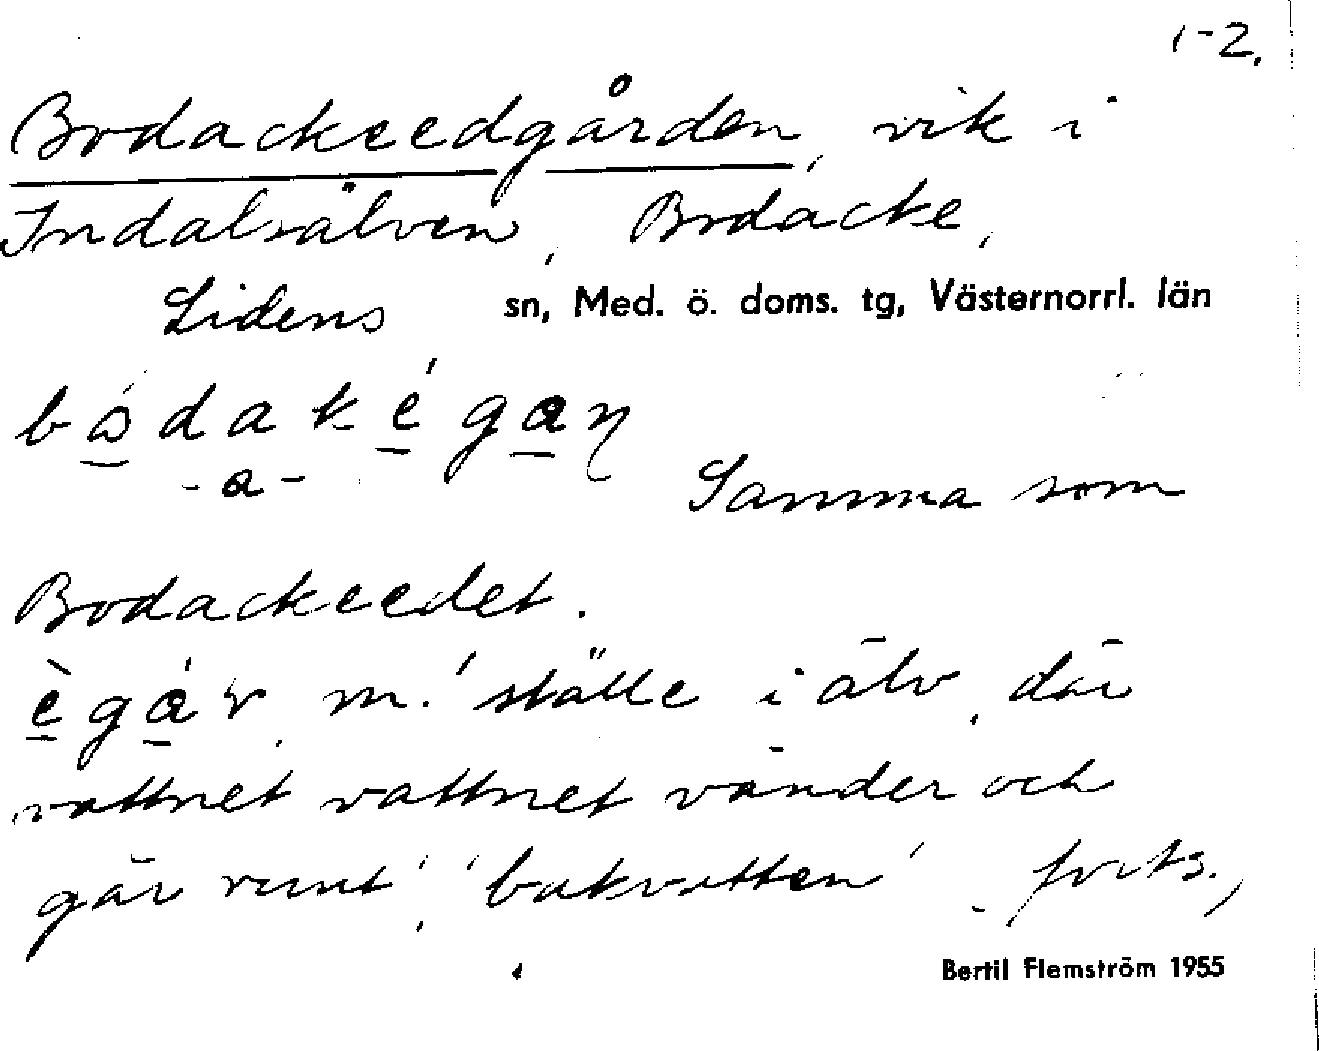 1-2.
Bodackeedgården, vik i
Indalsälven, Bodacke,
Lidens sn, Med. ö. doms. tg, Västernorrl. län
-a-
Samma som
Bodackeedet.
m. 'ställe i älv, där
vattnet vattnet vänder och
går runt', 'bakvatten' forts.,
Bertil Flemström 1955